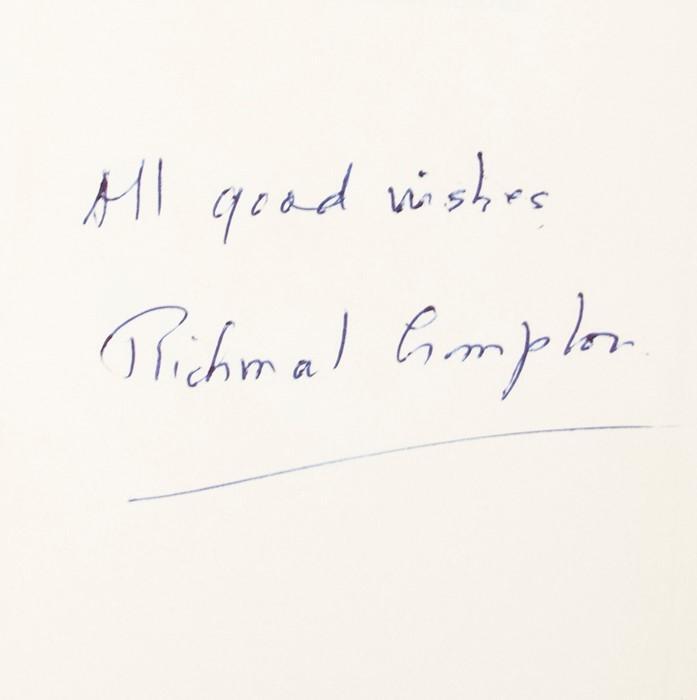 All good wishes
Richmal Crompton